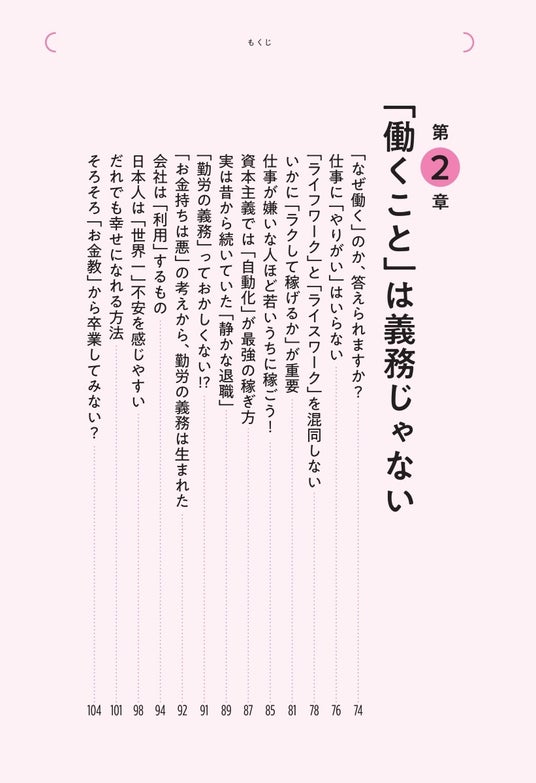 もくじ
第2章
「働くこと」は義務じゃない
「なぜ働く」のか、答えられますか？ 74
仕事に「やりがい」はいらない 76
「ライフワーク」と「ライスワーク」を混同しない 78
いかに「ラクして稼げるか」が重要 81
仕事が嫌いな人ほど若いうちに稼ごう！ 85
資本主義では「自動化」が最強の稼ぎ方 87
実は昔から続いていた「静かな退職」 89
「勤労の義務」っておかしくない!? 91
「お金持ちは悪」の考えから、勤労の義務は生まれた 92
会社は「利用」するもの 94
日本人は「世界一」不安を感じやすい 98
だれでも幸せになれる方法 101
そろそろ「お金教」から卒業してみない？ 104